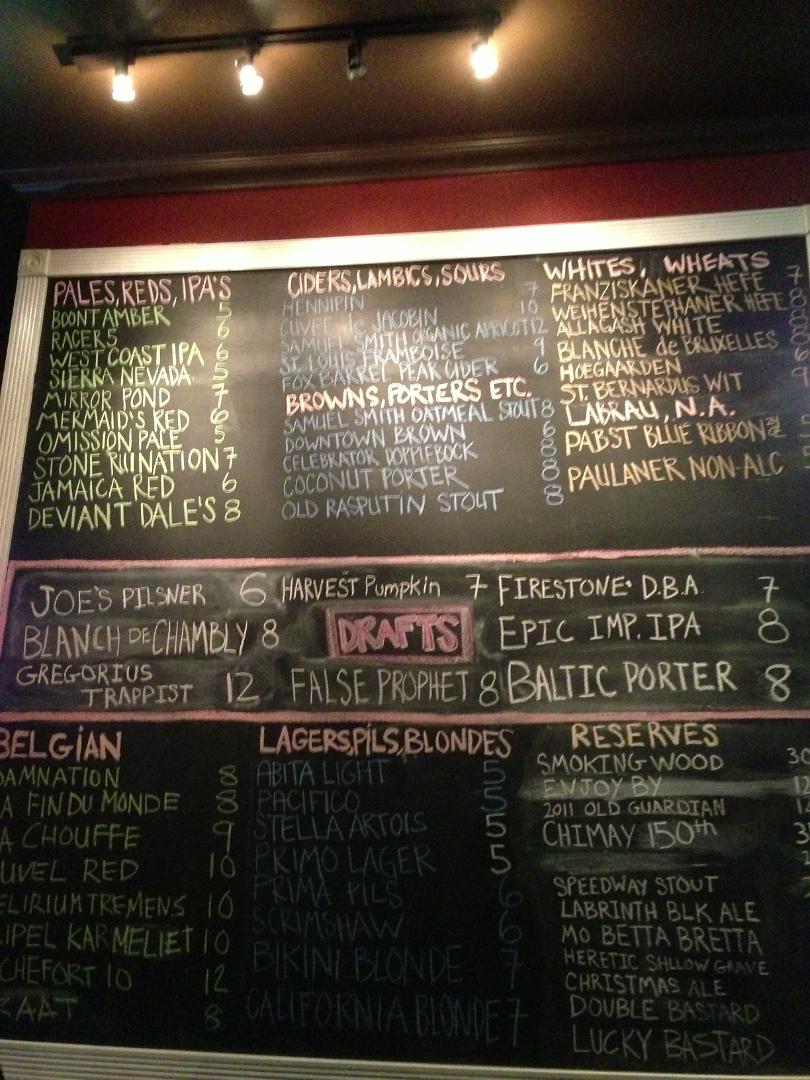 PALES, REDS, IPA'S
BOONT AMBER 5
RACER 5 6
WEST COAST IPA 6
SIERRA NEVADA 5
MIRROR POND 7
MERMAID'S RED 6
OMISSION PALE 5
STONE RUINATION 7
JAMAICA RED 6
DEVIANT DALE'S 8
CIDERS, LAMBICS, SOURS
HENNIPIN 7
CUVEE de JACOBIN 10
SAMUEL SMITH ORGANIC APRICOT 12
ST. LOUIS FRAMBOISE 9
FOX BARREL PEAR CIDER 6
BROWNS, PORTERS ETC.
SAMUEL SMITH OATMEAL STOUT 8
DOWNTOWN BROWN 6
CELEBRATOR DOPPIEBOCK 8
COCONUT PORTER 8
OLD RASPUTIN STOUT 8
WHITES, WHEATS
FRANZISKANER HEFE 7
WEIHENSTEPHANER HEFE
ALLAGASH WHITE
BLANCHE de BRUXELLES
HOEGAARDEN
ST. BERNARDUS WIT 9
LABRAU, N.A.
PABST BLUE RIBBON
PAULANER NON-ALC
JOE'S PILSNER 6
BLANCH DE CHAMBLY 8
GREGORIUS
TRAPPIST 12
HARVEST Pumpkin 7
DRAFTS
FALSE PROPHET 8
FIRESTONE D.B.A. 7
EPIC IMP. IPA 8
BALTIC PORTER 8
BELGIAN
DAMNATION 8
A FIN DU MONDE 8
A CHOUFFE 9
UVEL RED 10
ELIRIUM TREMENS 10
IPEL KARMELIET 10
CHEFORT 10 12
KAAT 8
LAGERS, PILS, BLONDES
ABITA LIGHT 5
PACIFICO 5
STELLA ARTOIS 5
PRIMO LAGER 5
PRIMA PILS 6
SCRIMSHAW 6
BIKINI BLONDE 7
CALIFORNIA BLONDE 7
RESERVES
SMOKING WOOD 30
ENJOY BY
2011 OLD GUARDIAN
CHIMAY 150th
SPEEDWAY STOUT
LABRINTH BLK ALE
MO BETTA BRETTA
HERETIC SHLLOW GRAVE
CHRISTMAS ALE
DOUBLE BASTARD
LUCKY BASTARD